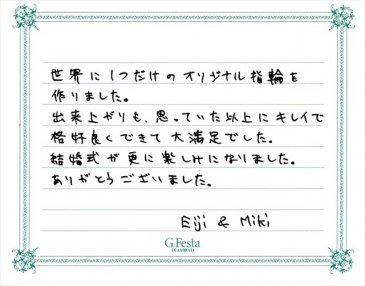 世界に1つだけのオリジナル指輪を
作りました。
出来上がりも、思っていた以上にキレイで
格好良くできて大満足でした。
結婚式が更に楽しみになりました。
ありがとうございました。
Eiji & Miki
G.Festa
DIAMOND